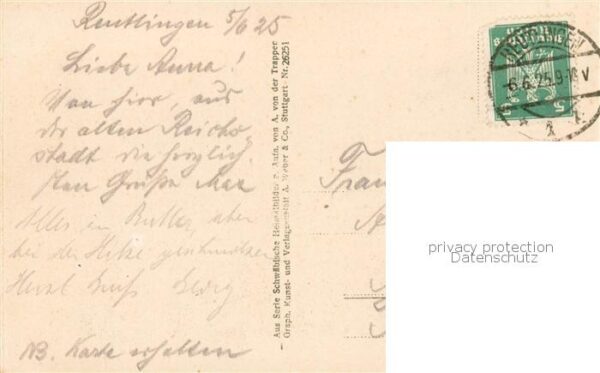 Reutlingen 5/6 25
Liebe Anna!
Von hier, aus
der alten Reichs
stadt die herzlich
sten Grüße Max
Alles in Butter, aber
bei der Hitze geschwitzt
Herzl. Gruß Georg
NB. Karte erhalten
Aus Serie Schwäbische Heimatbilder n. Aufn. von A. von der Trappen
Graph. Kunst- und Verlagsanstalt A. Weber & Co., Stuttgart Nr. 26251
-6.6.25.9-10 V
5
privacy protection
Datenschutz